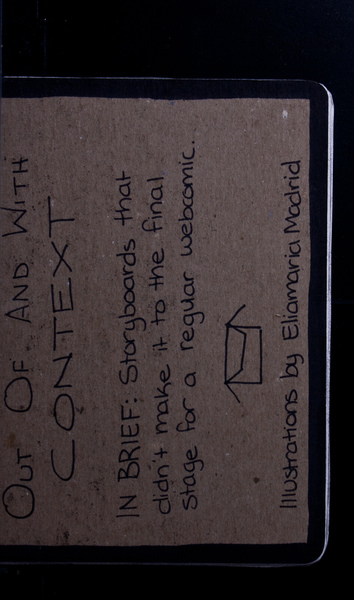 OUT OF AND WITH
CONTEXT
IN BRIEF: Storyboards that
didn't make it to the final
stage for a regular webcomic.
Illustrations by Eliamaria Madrid